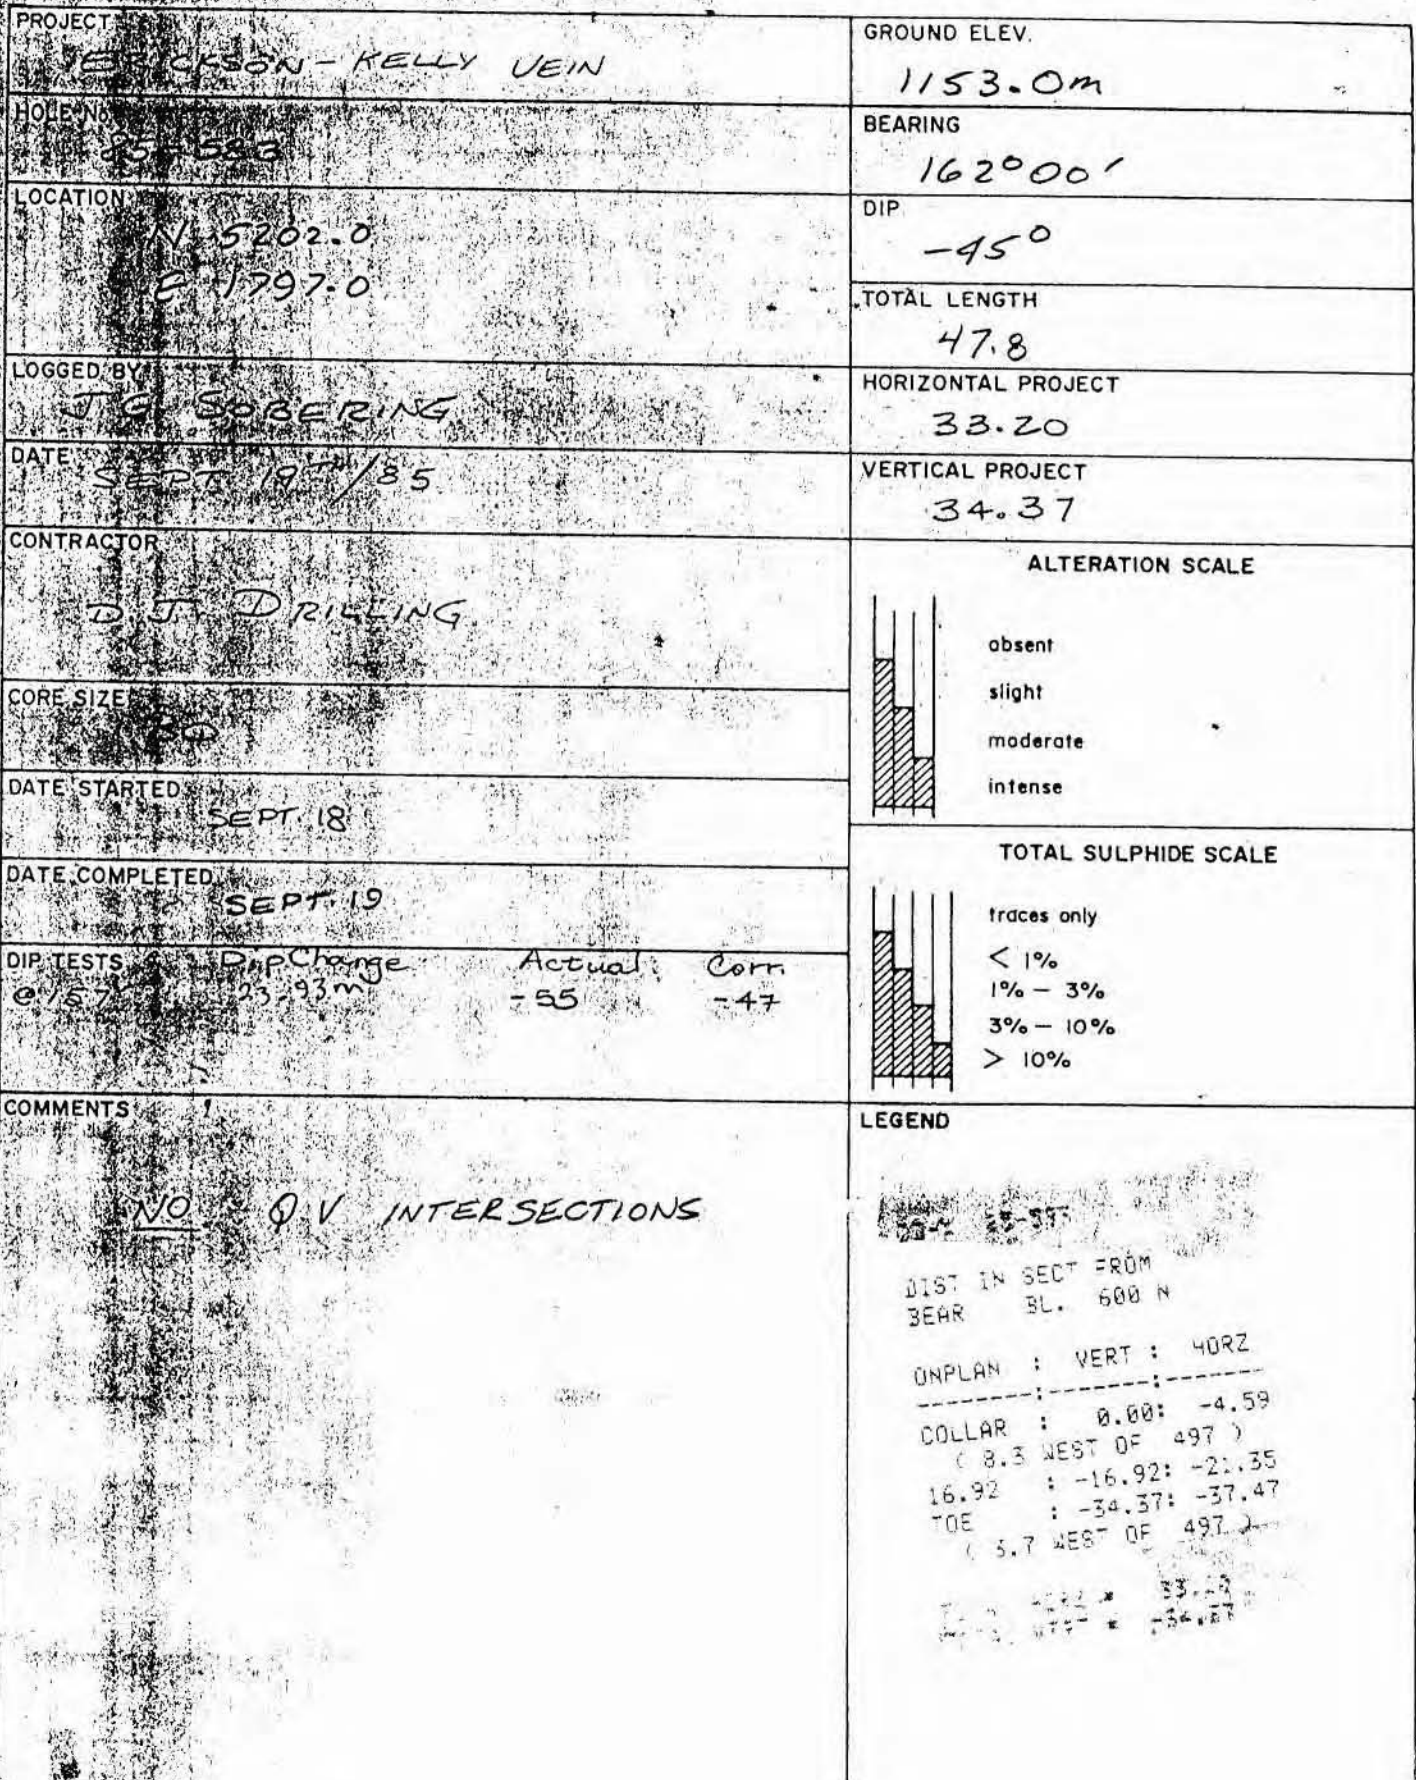 PROJECT
ERICKSON - KELLY VEIN
HOLE No.
85-583
LOCATION
N 5202.0
E 1797.0
LOGGED BY
J.G. SOBERING
DATE
SEPT. 19TH/85
CONTRACTOR
D.J. DRILLING
CORE SIZE
BQ
DATE STARTED
SEPT. 18
DATE COMPLETED
SEPT. 19
DIP TESTS Dip Change Actual Corr.
@ 157' 23.93m -55 -47
COMMENTS
NO Q.V INTERSECTIONS
GROUND ELEV.
1153.0m
BEARING
162°00'
DIP
-45°
TOTAL LENGTH
47.8
HORIZONTAL PROJECT
33.20
VERTICAL PROJECT
34.37
ALTERATION SCALE
absent
slight
moderate
intense
TOTAL SULPHIDE SCALE
traces only
< 1%
1% – 3%
3% – 10%
> 10%
LEGEND
DIST IN SECT FROM
BEAR BL. 600 N
ONPLAN : VERT : HORZ
-------:-------:-------
COLLAR : 0.00: -4.59
( 8.3 WEST OF 497 )
16.92 : -16.92: -21.35
TOE : -34.37: -37.47
WEST OF 497 )